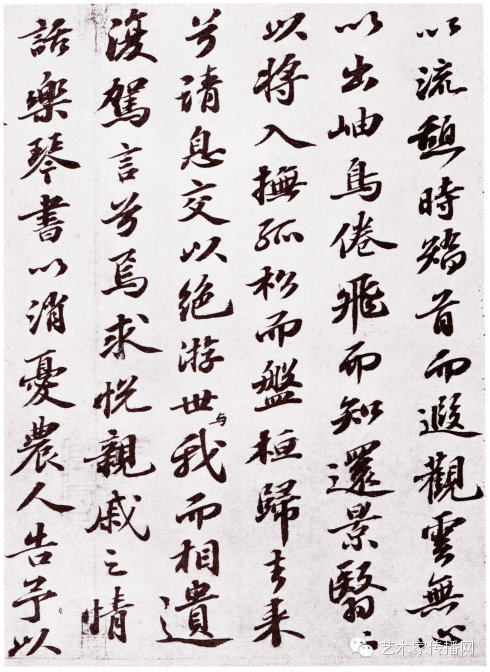 以流憩時矯首而遐觀雲無心
以出岫鳥倦飛而知還景翳翳
以將入撫孤松而盤桓歸去来
兮請息交以絶游世与我而相遺
復駕言兮焉求悦親戚之情
話樂琴書以消憂農人告予以
艺术家传播网